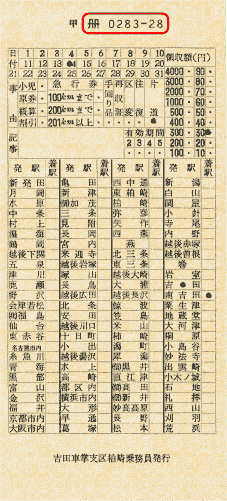 甲 冊 0283-28
日 1 2 3 4 5 6 7 8 9 10 領収額(円)
11 12 13 14 15 16 17 18 19 20 4000 90
付 21 22 23 24 25 26 27 28 29 30 31 3000 80
事 小児 急行券 手再区往片 2000 70
原券 100kmまで 回収 1000 60
由 概算 200kmまで 900 50
割引 201km以上 証変復道 800 40
記 有効期間 300 30
事 2 3 4 5 200 20
100 10
発駅 着 発駅 着 発駅 着 発駅 着
新発田 亀田 西中通 新潟
月岡 新津 東柏崎 白山
水原 御加茂 柏崎 関屋
中条 三条 弥彦 小針
村上 見附 矢作 寺尾
坂町 長岡 西燕 内野
鶴岡 宮内 燕 越後赤塚
越後下関 来迎寺 北三条 越後曽根
五泉 越後岩塚 東三条 巻
津川 塚山 越後大崎 岩室
鹿瀬 長鳥 大面 吉田
野沢 越後広田 越後長沢 南吉田
会津若松 北条 鯨波 粟生津
福島 安田 笠島 地蔵堂
仙台 越後川口 米山 大河津
東赤谷 十日町 柿崎 桐原
名古屋市内 小出 潟町 小島谷
糸魚川 越後湯沢 犀潟 妙法寺
青海 水上 御黒井 出雲崎
黒部 高崎 直江津 小木ノ城
富山 都区内 御高田 石地
金沢 横浜市内 御新井 礼拝
福井 大形 妙高高原 西山
京都市内 早通 長野 刈羽
大阪市内 葛塚 松本 荒浜
吉田車掌支区柏崎乗務員発行